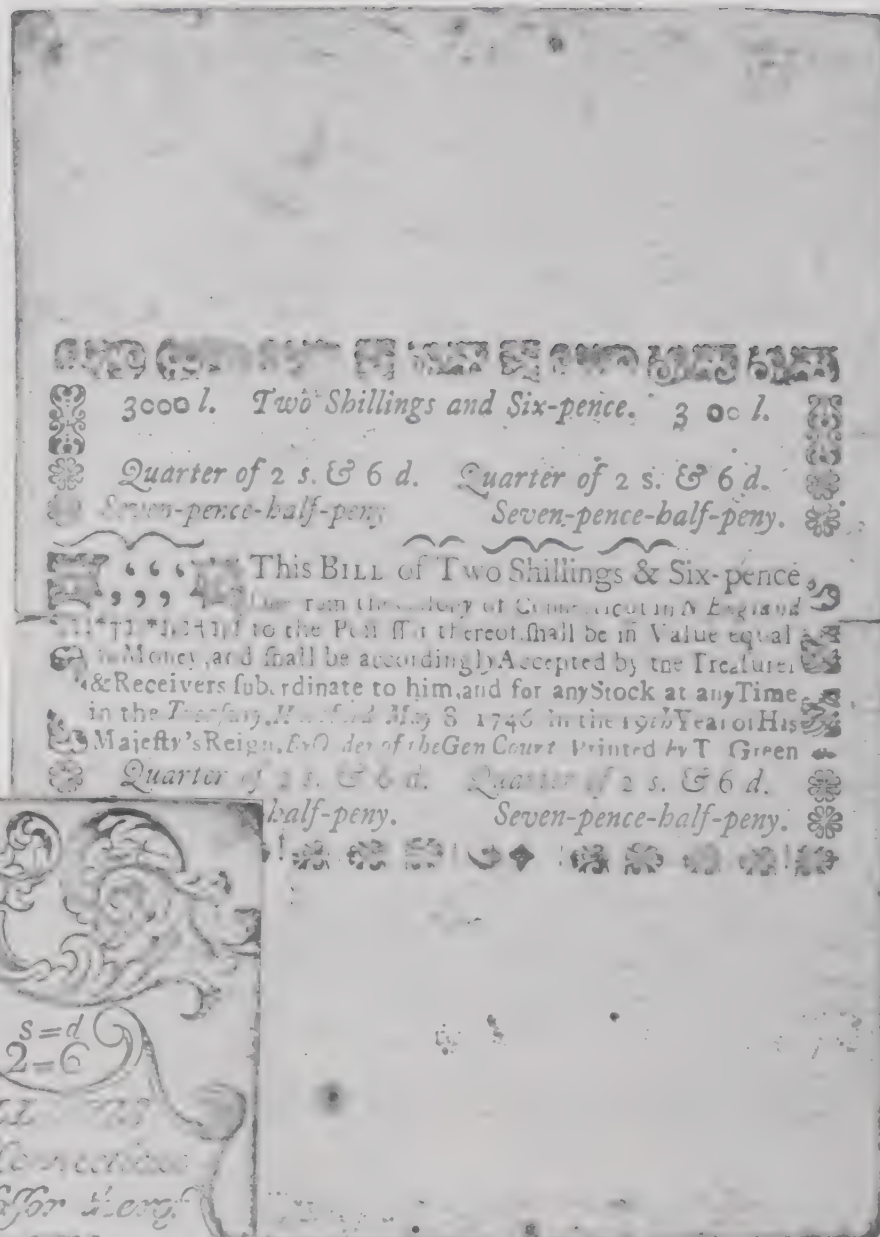 3000 l. Two Shillings and Six-pence. 3 00 l.
Quarter of 2 s. & 6 d. Quarter of 2 s. & 6 d.
Seven-pence-half-peny Seven-pence-half-peny.
This BILL of Two Shillings & Six-pence,
of in N England
to the Poſſ thereof, ſhall be in Value equal
Money, and ſhall be accordingly Accepted by the Treaſurer
& Receivers ſub rdinate to him, and for any Stock at any Time
in the May 8 1746 In the 19th Year of His
Majeſty's Reign, By O der of the Gen Court Printed by T Green
Quarter of 2 s. & 6 d. Quarter of 2 s. & 6 d.
half-peny. Seven-pence-half-peny.
s=d
2=6